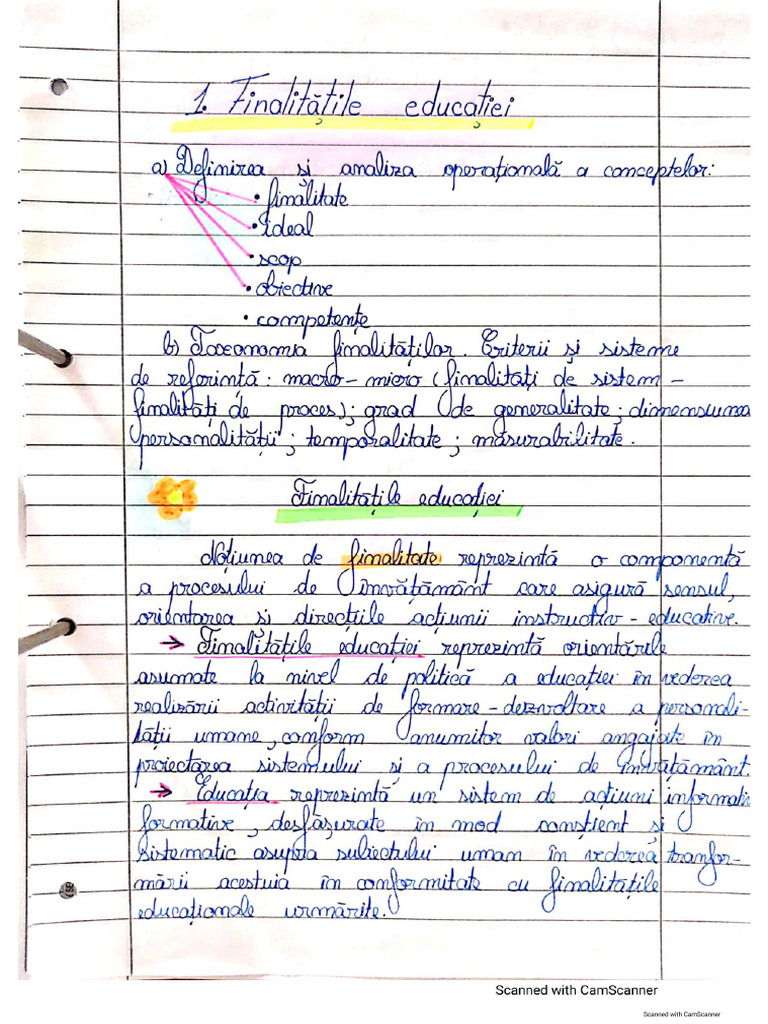 1. Finalitățile educației
a) Definirea și analiza operațională a conceptelor:
• finalitate
• ideal
• scop
• obiective
• competențe
b) Taxonomia finalităților. Criterii și sisteme
de referință: macro-micro (finalități de sistem -
finalități de proces); grad de generalitate; dimensiunea
personalității; temporalitate; măsurabilitate.
Finalitățile educației
Noțiunea de finalitate reprezintă o componentă
a procesului de învățământ care asigură sensul,
orientarea si direcțiile acțiunii instructiv-educative.
→ Finalitățile educației reprezintă orientările
asumate la nivel de politică a educației în vederea
realizării activității de formare-dezvoltare a personali-
tății umane, conform anumitor valori angajate în
proiectarea sistemului și a procesului de învățământ.
→ Educația reprezintă un sistem de acțiuni informativ
formative, desfășurate în mod conștient și
sistematic asupra subiectului uman în vederea tranfor-
mării acestuia în conformitate cu finalitățile
educaționale urmărite.
Scanned with CamScanner
Scanned with CamScanner